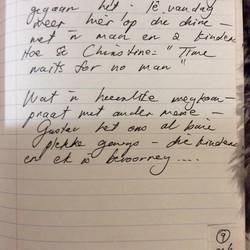 gegaan het - Ek vandag
weer hier op die
met 'n man en 2 kinders
Hoe sê Christine: "Time
waits for no man"
Wat 'n heerlike
praat met ander mense -
Gustav het ons al baie
plekke gewys - die kinders
en ek is bevoorreg....
9